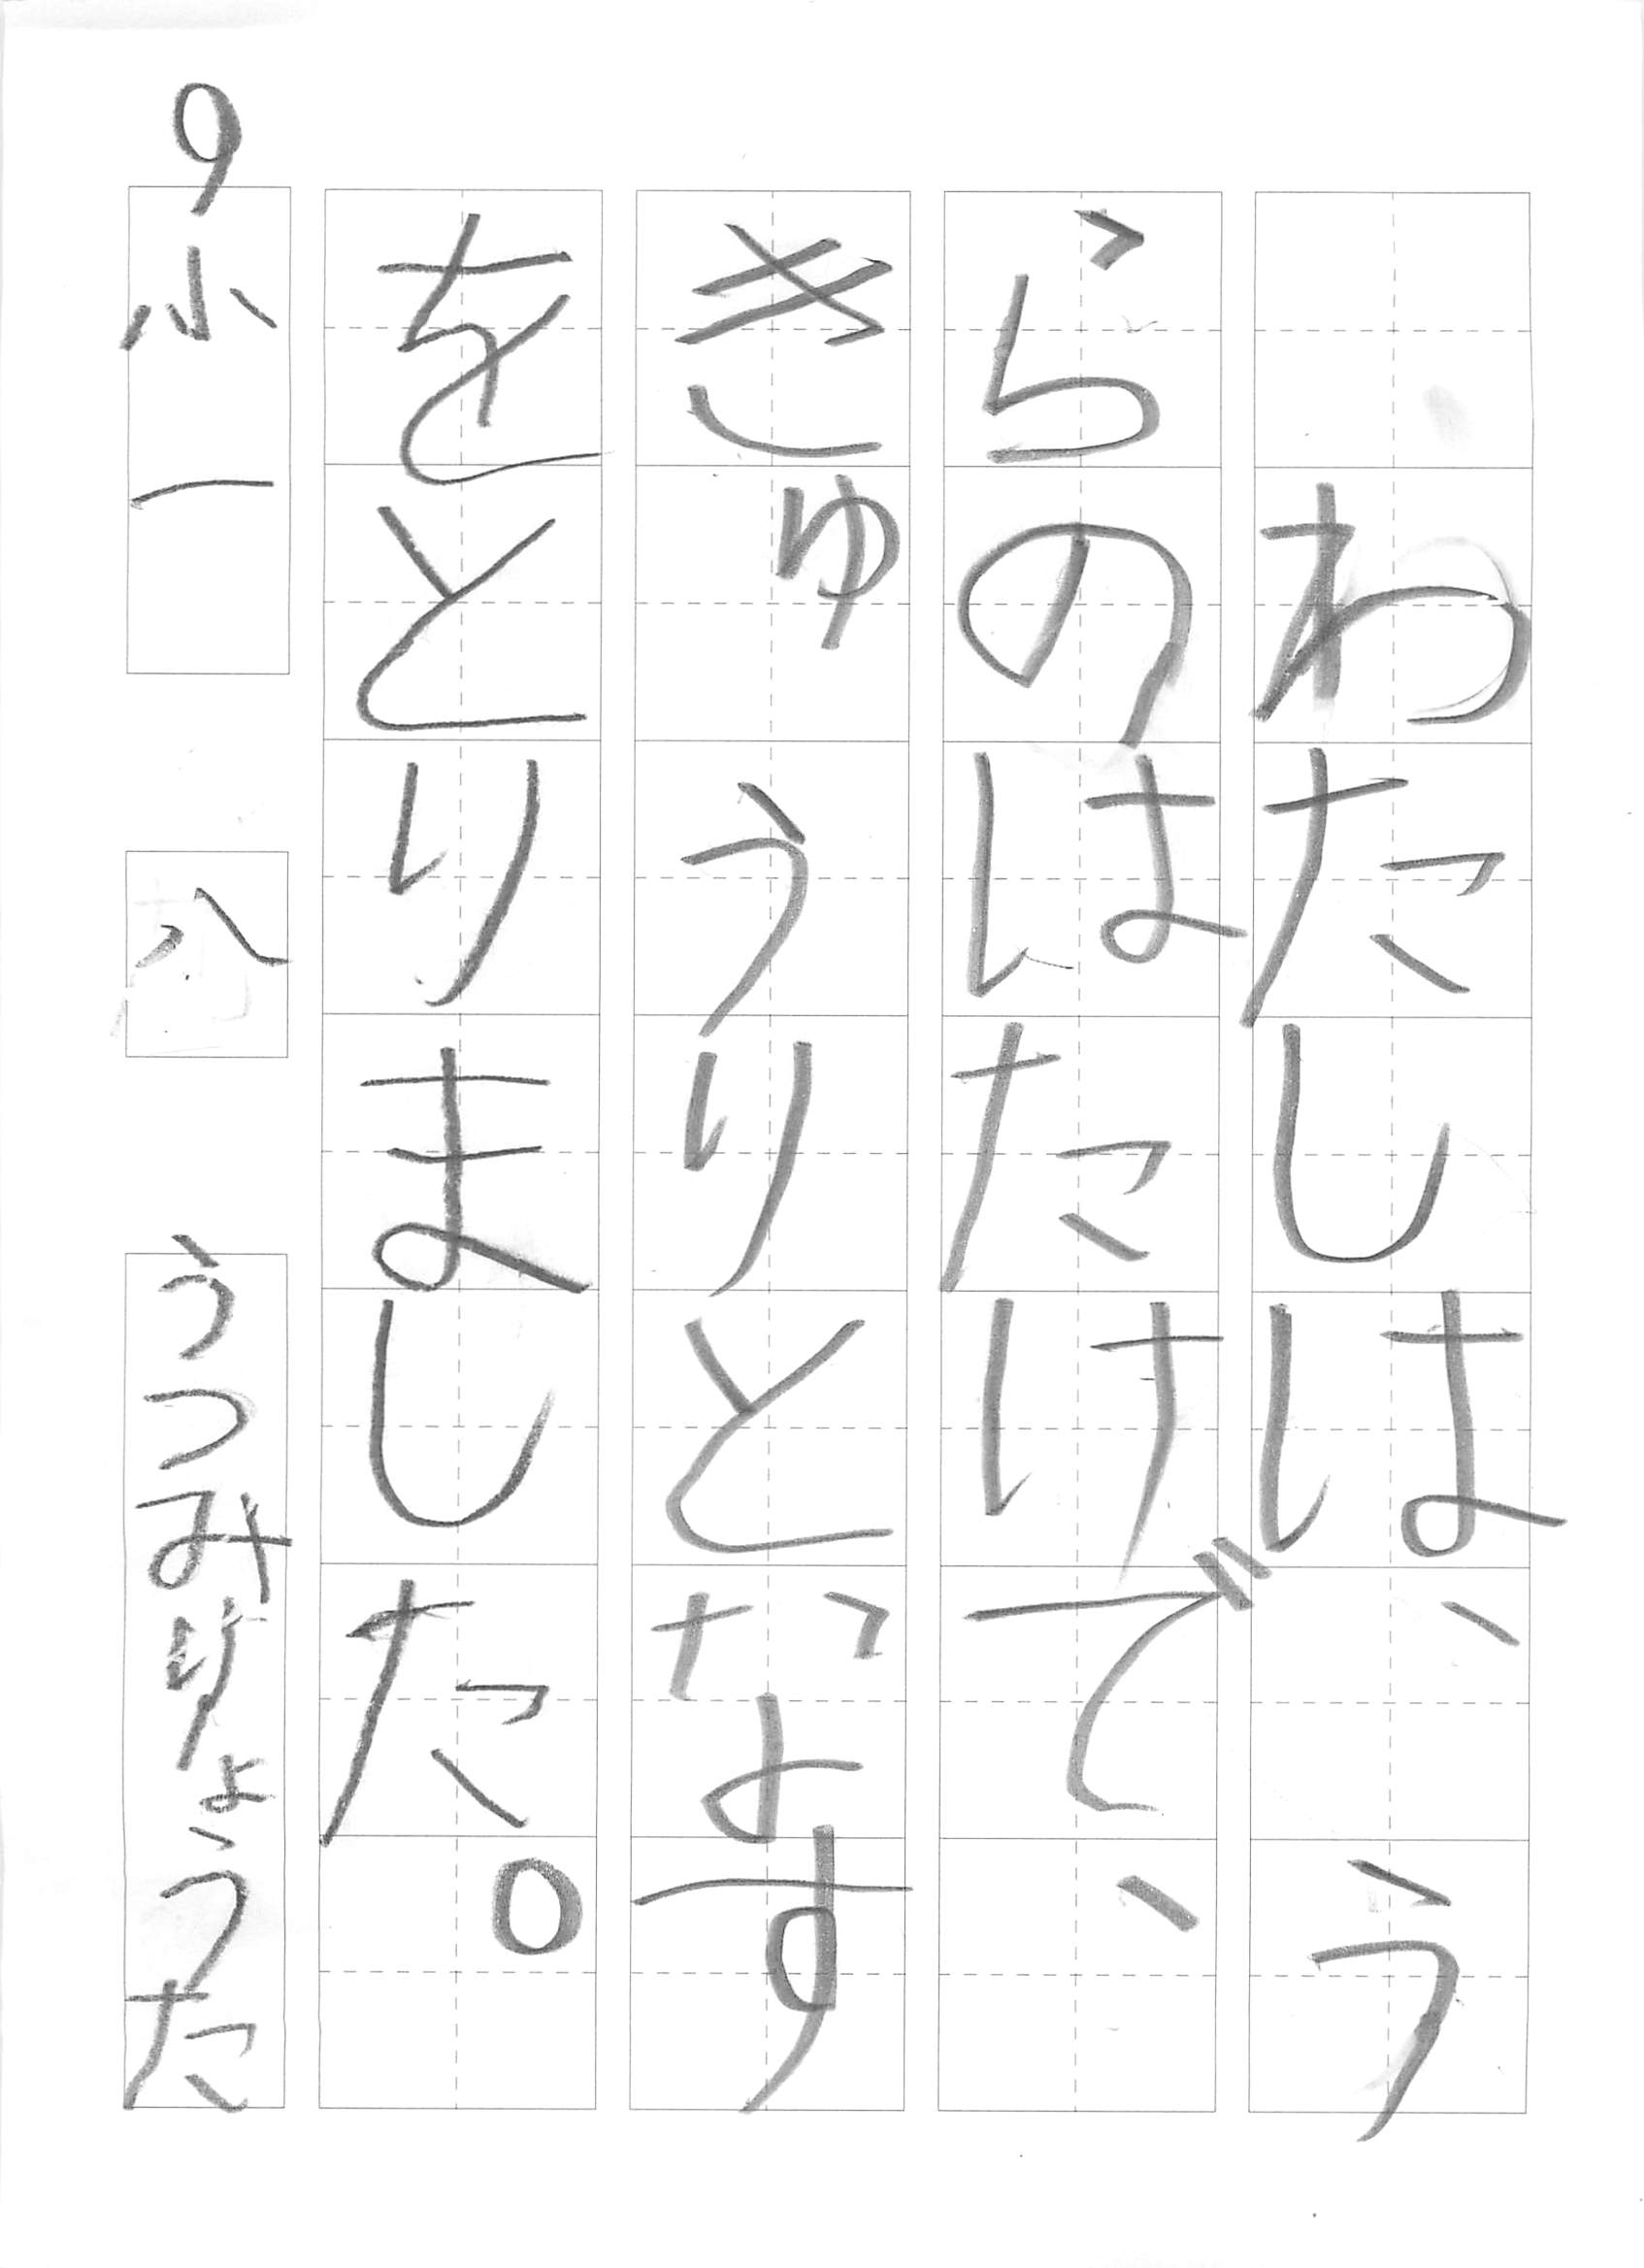 わたしは、う
らのはたけで、
きゅうりとなす
をとりました。
9小一 八 うつみりょうた